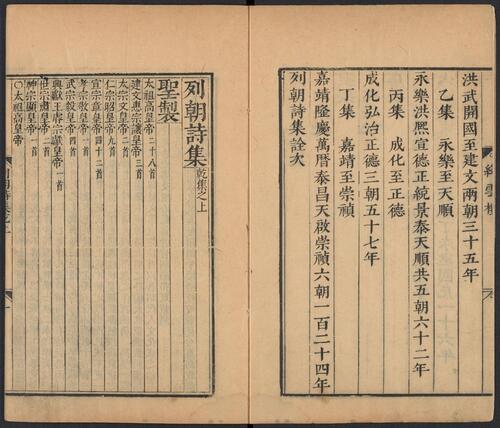 洪武開國至建文兩朝三十五年
乙集 永樂至天順
永樂洪熙宣德正統景泰天順共五朝六十二年
丙集 成化至正德
成化弘治正德三朝五十七年
丁集 嘉靖至崇禎
嘉靖隆慶萬曆泰昌天啟崇禎六朝一百二十四年
列朝詩集詮次
列朝詩集 乾集之上
聖製
太祖高皇帝二十八首
建文惠宗讓皇帝三首
太宗文皇帝二首
仁宗昭皇帝十首
宣宗章皇帝四十二首
孝宗敬皇帝一首
武宗毅皇帝四首
興獻王睿宗獻皇帝一首
世宗肅皇帝二首
神宗顯皇帝一首
○太祖高皇帝